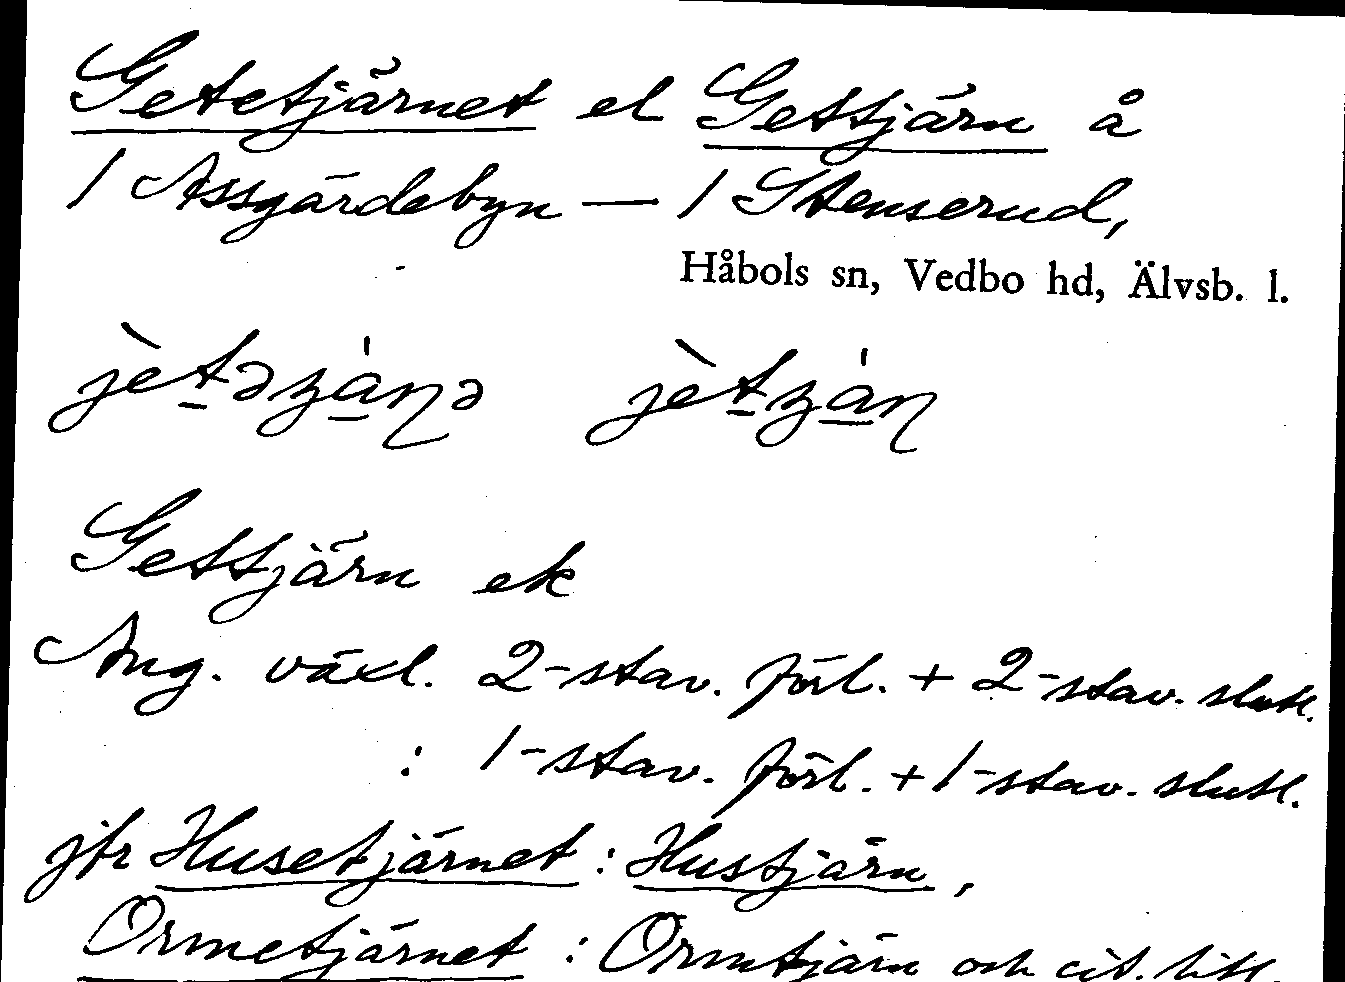 Getetjärnet el Gettjärn å
1 Assgärdebyn — 1 Stenserud,
Håbols sn, Vedbo hd, Älvsb. l.
Gettjärn ek
Ang. växl. 2-stav. förl. + 2-stav. slutl.
: 1-stav. förl. + 1-stav. slutl.
jfr Husetjärnet : Hustjärn,
Ormetjärnet : Ormtjärn och cit. litt.